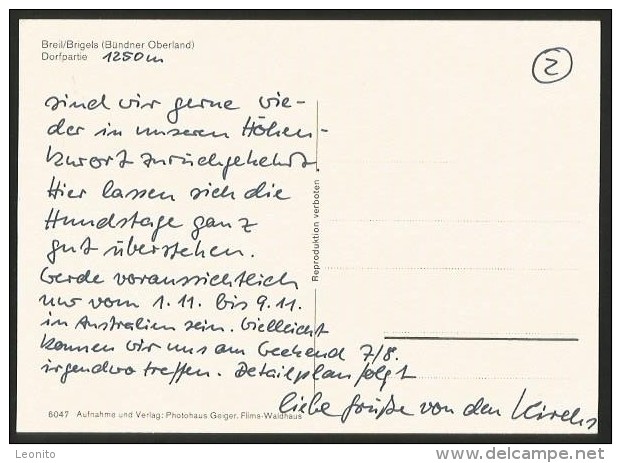 Breil/Brigels (Bündner Oberland)
Dorfpartie 1250m
2
sind wir gerne wie-
der in unseren Höhen-
kurort zurückgekehrt.
Hier lassen sich die
Hundstage ganz
gut überstehen.
Werde voraussichtlich
nur vom 1.11. bis 9.11.
in Australien sein. Vielleicht
können wir uns am Weekend 7/8.
irgendwo treffen. Detailplan folgt
liebe Grüße von den Kirchs
Reproduktion verboten
6047 Aufnahme und Verlag: Photohaus Geiger, Flims-Waldhaus
Leonito
delcampe.net